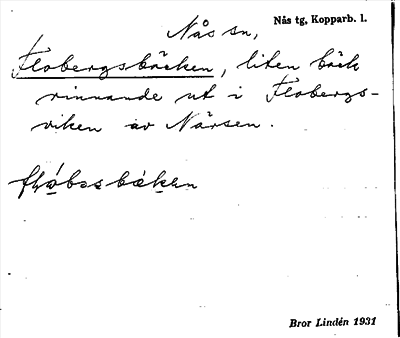 Nås sn,
Nås tg, Kopparb. l.
Flobergsbäcken, liten bäck
rinnande ut i Flobergs-
viken av Närsen.
Bror Lindén 1931